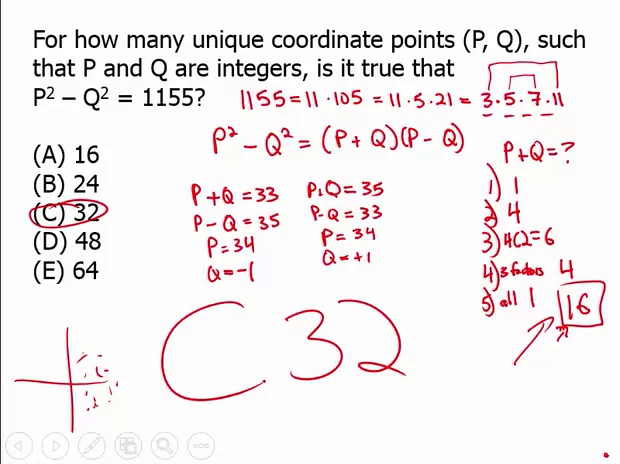 For how many unique coordinate points (P, Q), such
that P and Q are integers, is it true that
P² – Q² = 1155?
1155 = 11 · 105 = 11 · 5 · 21 = 3 · 5 · 7 · 11
P² – Q² = (P + Q)(P – Q)
(A) 16
(B) 24
(C) 32
(D) 48
(E) 64
P + Q = 33
P – Q = 35
P = 34
Q = –1
P+Q = 35
P–Q = 33
P = 34
Q = +1
P+Q = ?
1) 1
2) 4
3) 4C2 = 6
4) 3 factors 4
5) all 1
16
C 32